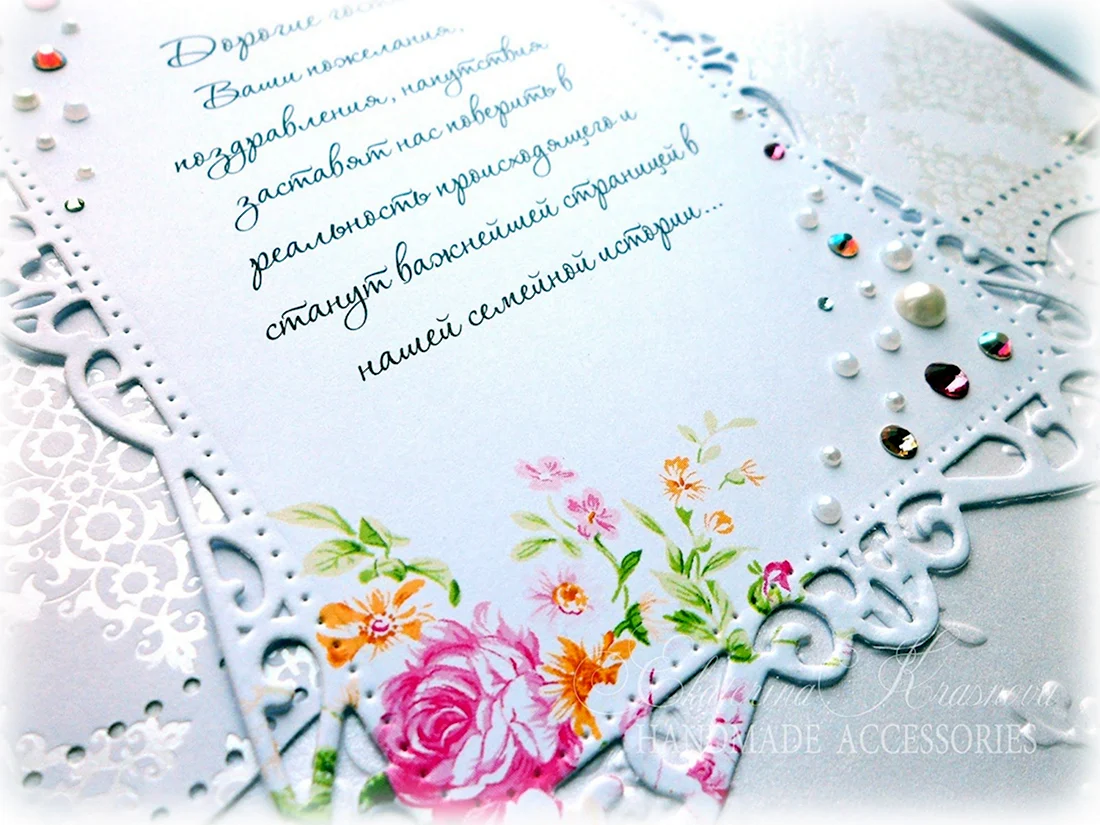 Дорогие гост
Ваши пожелания,
поздравления, напутствия
заставят нас поверить в
реальность происходящего и
станут важнейшей страницей в
нашей семейной истории...
Ekaterina Krasnova
HANDMADE ACCESSORIES